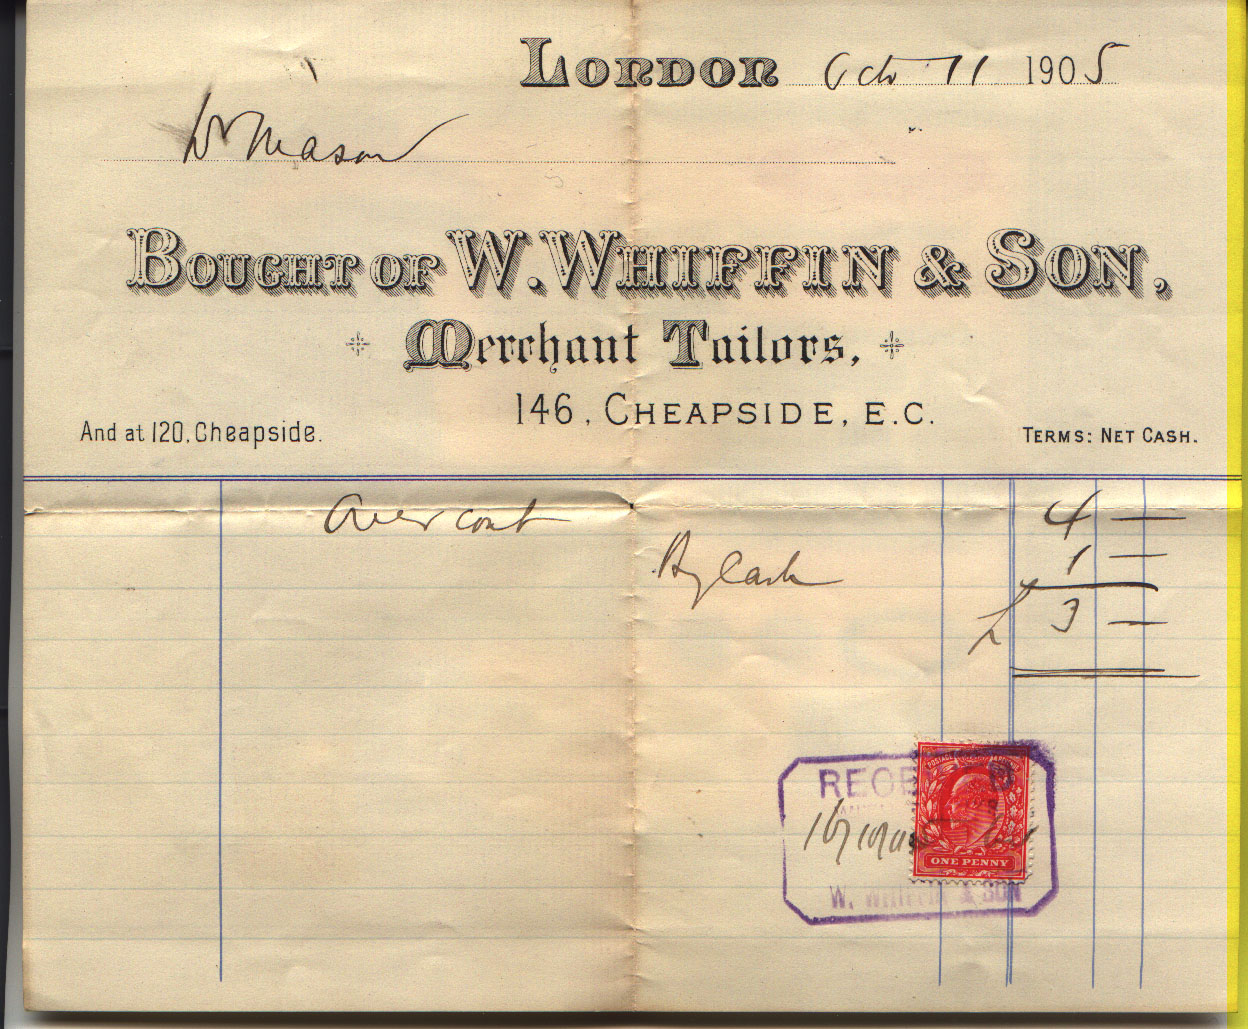 LONDON Octo 11 1905
Dr Mason
BOUGHT OF W. WHIFFIN & SON,
Merchant Tailors,
146, CHEAPSIDE, E.C.
And at 120, Cheapside.
TERMS: NET CASH.
Overcoat 4 —
By Cash 1 —
£ 3 —
POSTAGE REVENUE
ONE PENNY
W. WHIFFIN & SON